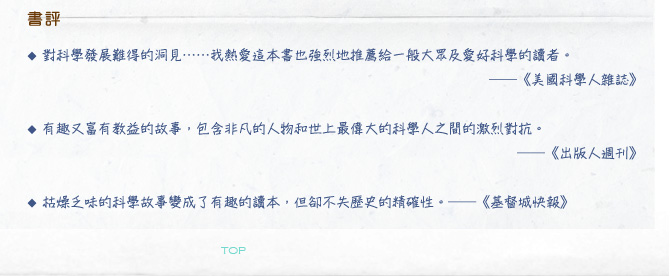 書評
◆ 對科學發展難得的洞見⋯⋯我熱愛這本書也強烈地推薦給一般大眾及愛好科學的讀者。
——《美國科學人雜誌》
◆ 有趣又富有教益的故事，包含非凡的人物和世上最偉大的科學人之間的激烈對抗。
——《出版人週刊》
◆ 枯燥乏味的科學故事變成了有趣的讀本，但卻不失歷史的精確性。——《基督城快報》
TOP